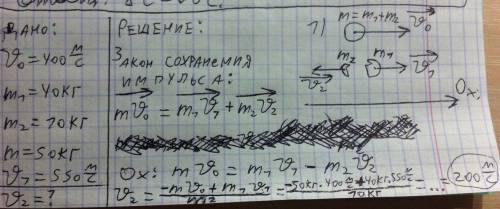 ДАНО:
v₀=400 м/с
m₁=40кг
m₂=10кг
m=50кг
v₁=550 м/с
v₂=?
РЕШЕНИЕ:
Закон сохранения
импульса:
mv₀ = m₁v₁ + m₂v₂
Ox: mv₀ = m₁v₁ - m₂v₂
v₂ = (-mv₀ + m₁v₁)/m₂ = (-50кг·400 м/с + 40кг·550 м/с)/10кг = ... = 200 м/с
1) m=m₁+m₂ v₀
m₂ m₁ v₁
v₂
Ox